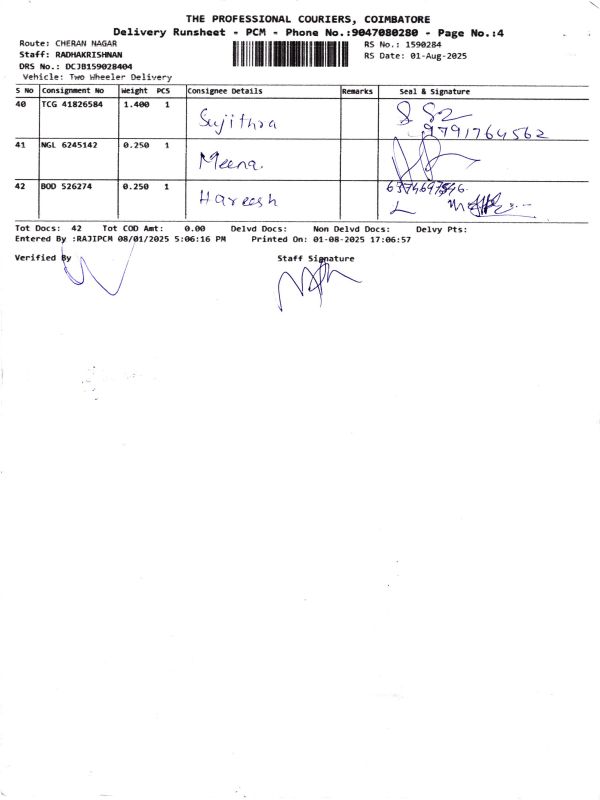 THE PROFESSIONAL COURIERS, COIMBATORE
Delivery Runsheet - PCM - Phone No.:9047080280 - Page No.:4
Route: CHERAN NAGAR RS No.: 1590284
Staff: RADHAKRISHNAN RS Date: 01-Aug-2025
DRS No.: DCJB159028404
Vehicle: Two Wheeler Delivery
S No Consignment No Weight PCS Consignee Details Remarks Seal & Signature
40 TCG 41826584 1.400 1 Sujithra
9791764562
41 NGL 6245142 0.250 1 Meena.
42 BOD 526274 0.250 1 Hareesh
Tot Docs: 42 Tot COD Amt: 0.00 Delvd Docs: Non Delvd Docs: Delvy Pts:
Entered By :RAJIPCM 08/01/2025 5:06:16 PM Printed On: 01-08-2025 17:06:57
Verified By Staff Signature